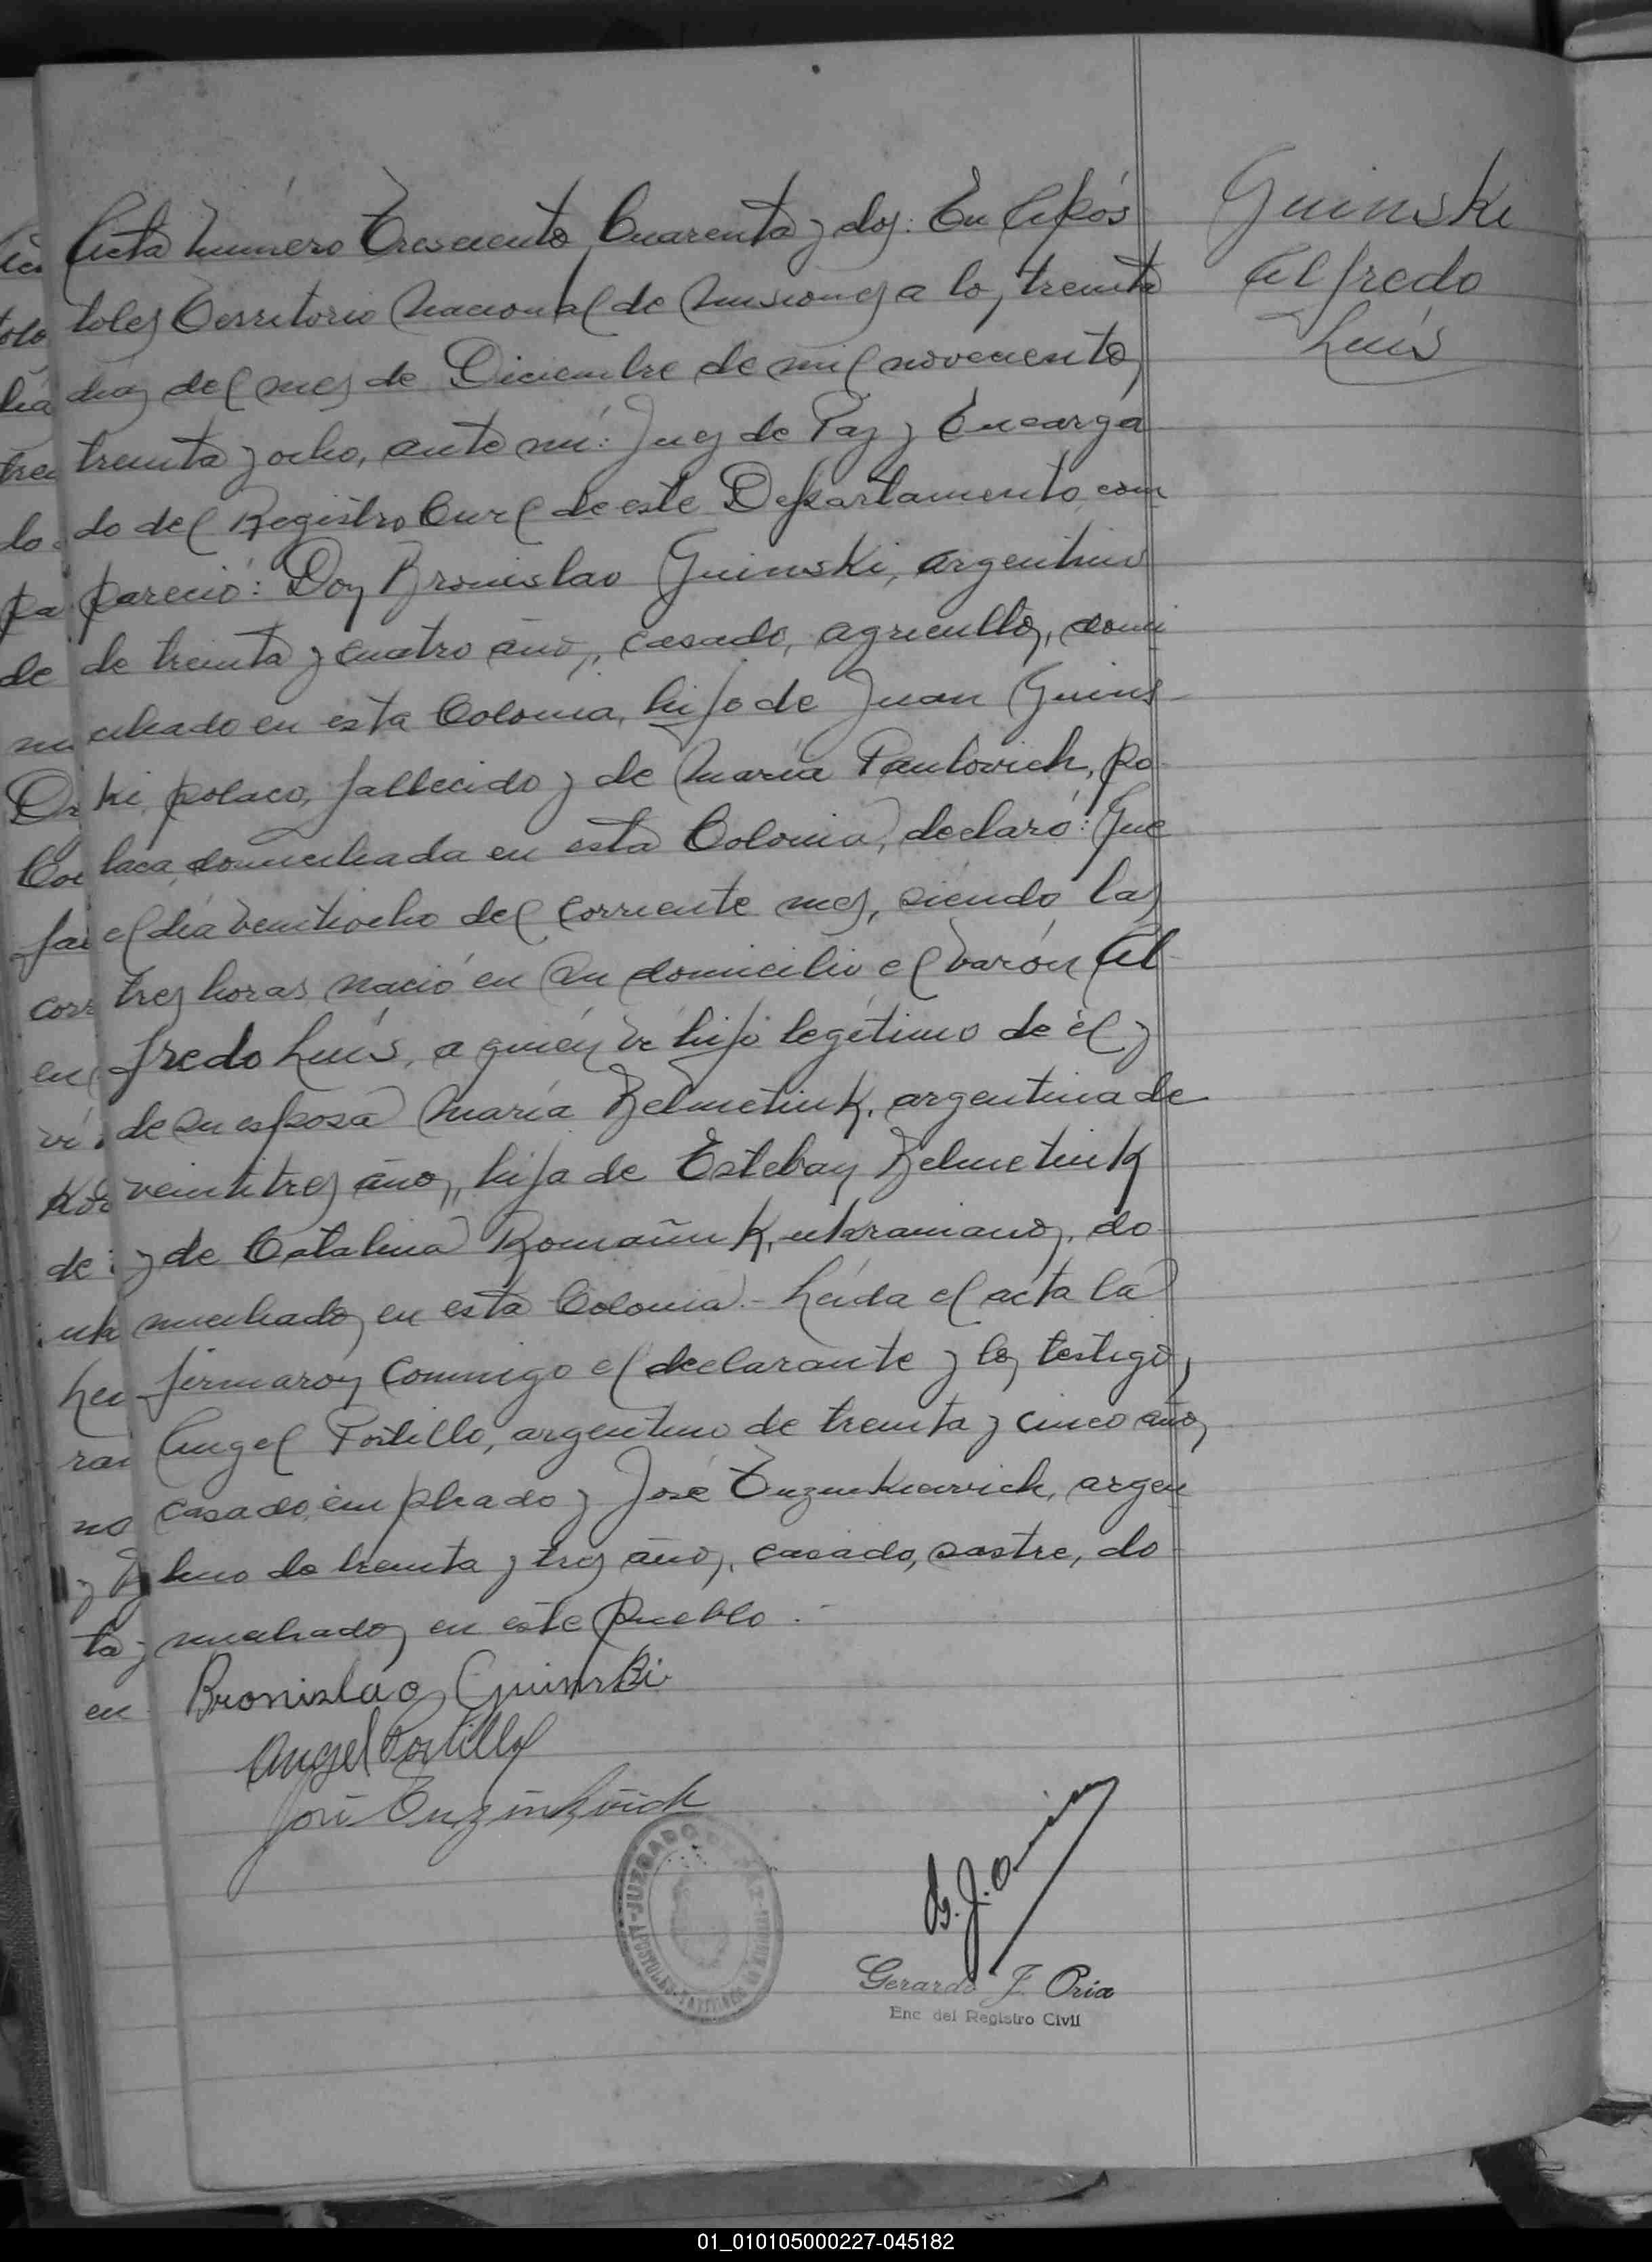 Acta número Trescientos Cuarenta y dos: En Após
toles Territorio Nacional de Misiones a los treinta
días del mes de Diciembre de mil novecientos
treinta y ocho, ante mí: Juez de Paz y Encarga
do del Registro Civil de este Departamento, com
pareció: Don Bronislao Guinski, argentino
de treinta y cuatro años, casado, agricultor, domi
ciliado en esta Colonia, hijo de Juan Guins
ki, polaco, fallecido y de María Paulovich, po
laca, domiciliada en esta Colonia, declaró: Que
el día veintiocho del corriente mes, siendo las
tres horas, nació en su domicilio el varón Al
fredo Luís, a quién ví hijo legítimo de él y
de su esposa María Belmetiuk, argentina de
veintitres años, hija de Esteban Belmetiuk
y de Catalina Romañuk, ukranianos, do
miciliados en esta Colonia.- Leída el acta la
firmaron conmigo el declarante y los testigos,
Angel Portillo, argentino de treinta y cinco años,
casado, empleado y José argen
tino de treinta y tres años, casado, sastre, do
miciliados en este Pueblo.-
Bronislao Guinski
Angel Portillo
José
Guinski
Alfredo
Luís
JUZGADO DE PAZ
APOSTOLES
G. J. Oria
Gerardo J. Oria
Enc. del Registro Civil
01_010105000227-045182